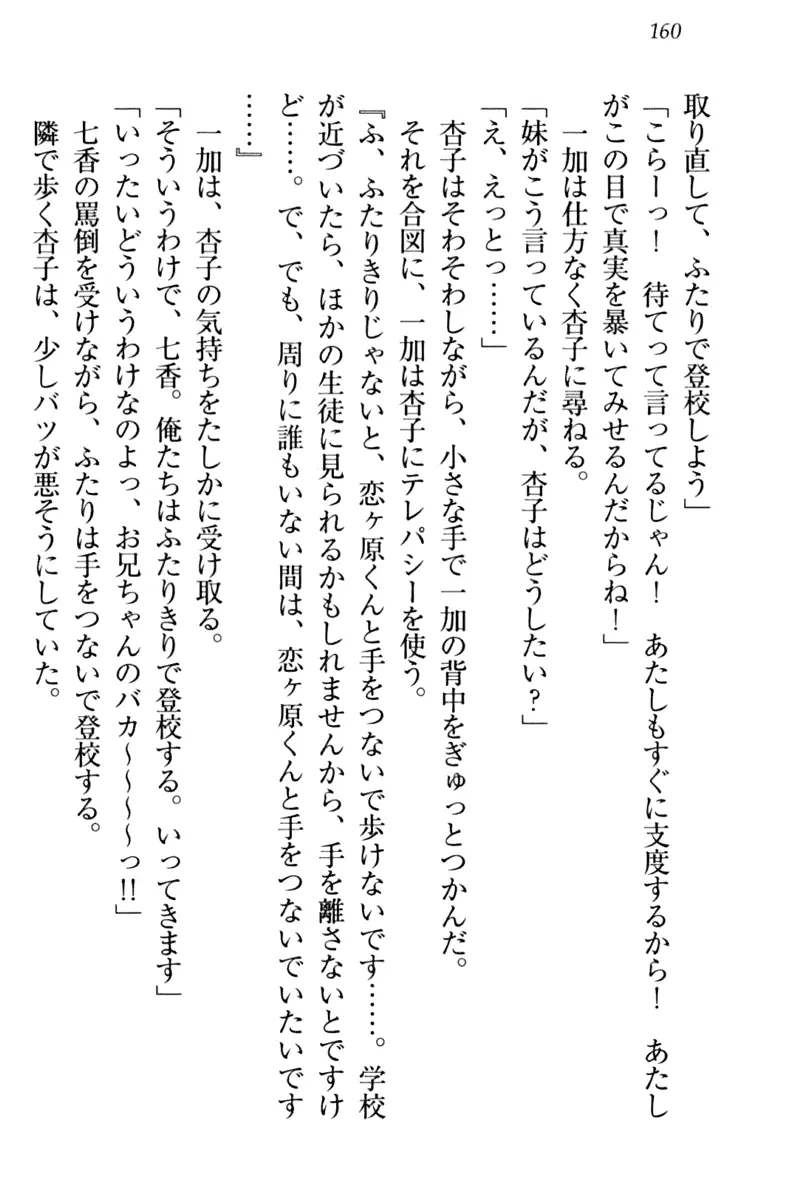 160
取り直して、ふたりで登校しよう」
「こらーっ！　待てって言ってるじゃん！　あたしもすぐに支度するから！　あたし
がこの目で真実を暴いてみせるんだからね！」
一加は仕方なく杏子に尋ねる。
「妹がこう言っているんだが、杏子はどうしたい？」
「え、えっとっ……」
杏子はそわそわしながら、小さな手で一加の背中をぎゅっとつかんだ。
それを合図に、一加は杏子にテレパシーを使う。
『ふ、ふたりきりじゃないと、恋ヶ原くんと手をつないで歩けないです……。学校
が近づいたら、ほかの生徒に見られるかもしれませんから、手を離さないとですけ
ど……。で、でも、周りに誰もいない間は、恋ヶ原くんと手をつないでいたいです
……』
一加は、杏子の気持ちをたしかに受け取る。
「そういうわけで、七香。俺たちはふたりきりで登校する。いってきます」
「いったいどういうわけなのよっ、お兄ちゃんのバカ～～～～っ!!」
七香の罵倒を受けながら、ふたりは手をつないで登校する。
隣で歩く杏子は、少しバツが悪そうにしていた。